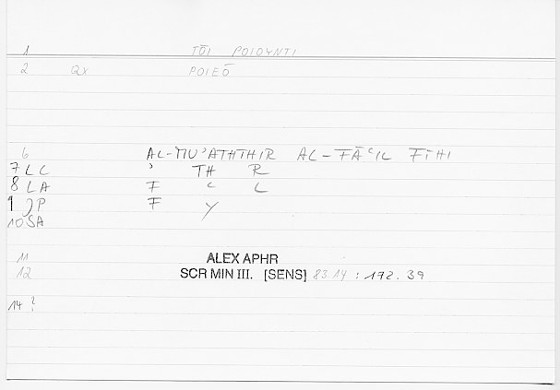 1 TŌI POIOYNTI
2 Qx POIEŌ
6 AL-MU'ATHTHIR AL-FĀʿIL FĪHI
7 LC ' TH R
8 LA F ʿ L
9 JP F Y
10 SA
11 ALEX APHR
12 SCR MIN III. [SENS] 83.14 : 172.39
14 ?